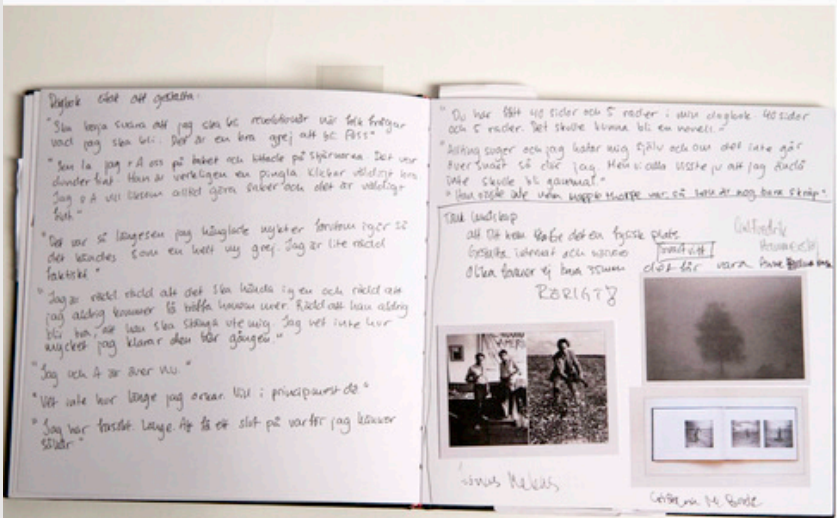 Dagbok citat att gestalta:
"Ska börja svara att jag ska bli revolutionär när folk frågar
vad jag ska bli. Det är en bra grej att bli. Fuss"
la jag + A oss på taket och tittade på stjärnorna. Det var
Han är verkligen en pingla. Klickar väldigt bra
Jag o A vill liksom alltid göra saker och det är väldigt
"Det var så längesen jag hånglade nykter förutom igår så
det kändes som en helt ny grej. Jag är lite rädd
faktiskt."
"Jag är rädd rädd att det ska hända igen och rädd att
jag aldrig kommer få träffa honom mer. Rädd att han aldrig
bli bra, att han ska stänga ute mig. Jag vet inte hur
mycket jag klarar den här gången."
"Jag och A är över nu."
"Vet inte hur länge jag orkar. Vill i princip mest dö."
"Jag har försökt. Länge. Att få ett slut på varför jag känner
såhär."
"Du har fått 40 sidor och 5 rader i min dagbok. 40 sidor
och 5 rader. Det skulle kunna bli en novell."
"Allting suger och jag hatar mig själv och om det inte går
över snart så dör jag. Men vi alla visste ju att jag ändå
inte skulle bli gammal."
"Han visste inte vem Mapplethorpe var, så han är nog bara skräp"
landskap
att hem det en fysisk plats
Gestalta internat och
olika former ej bara 35mm
svartvitt
det får vara
RÖRIGT
Jonas Mekas